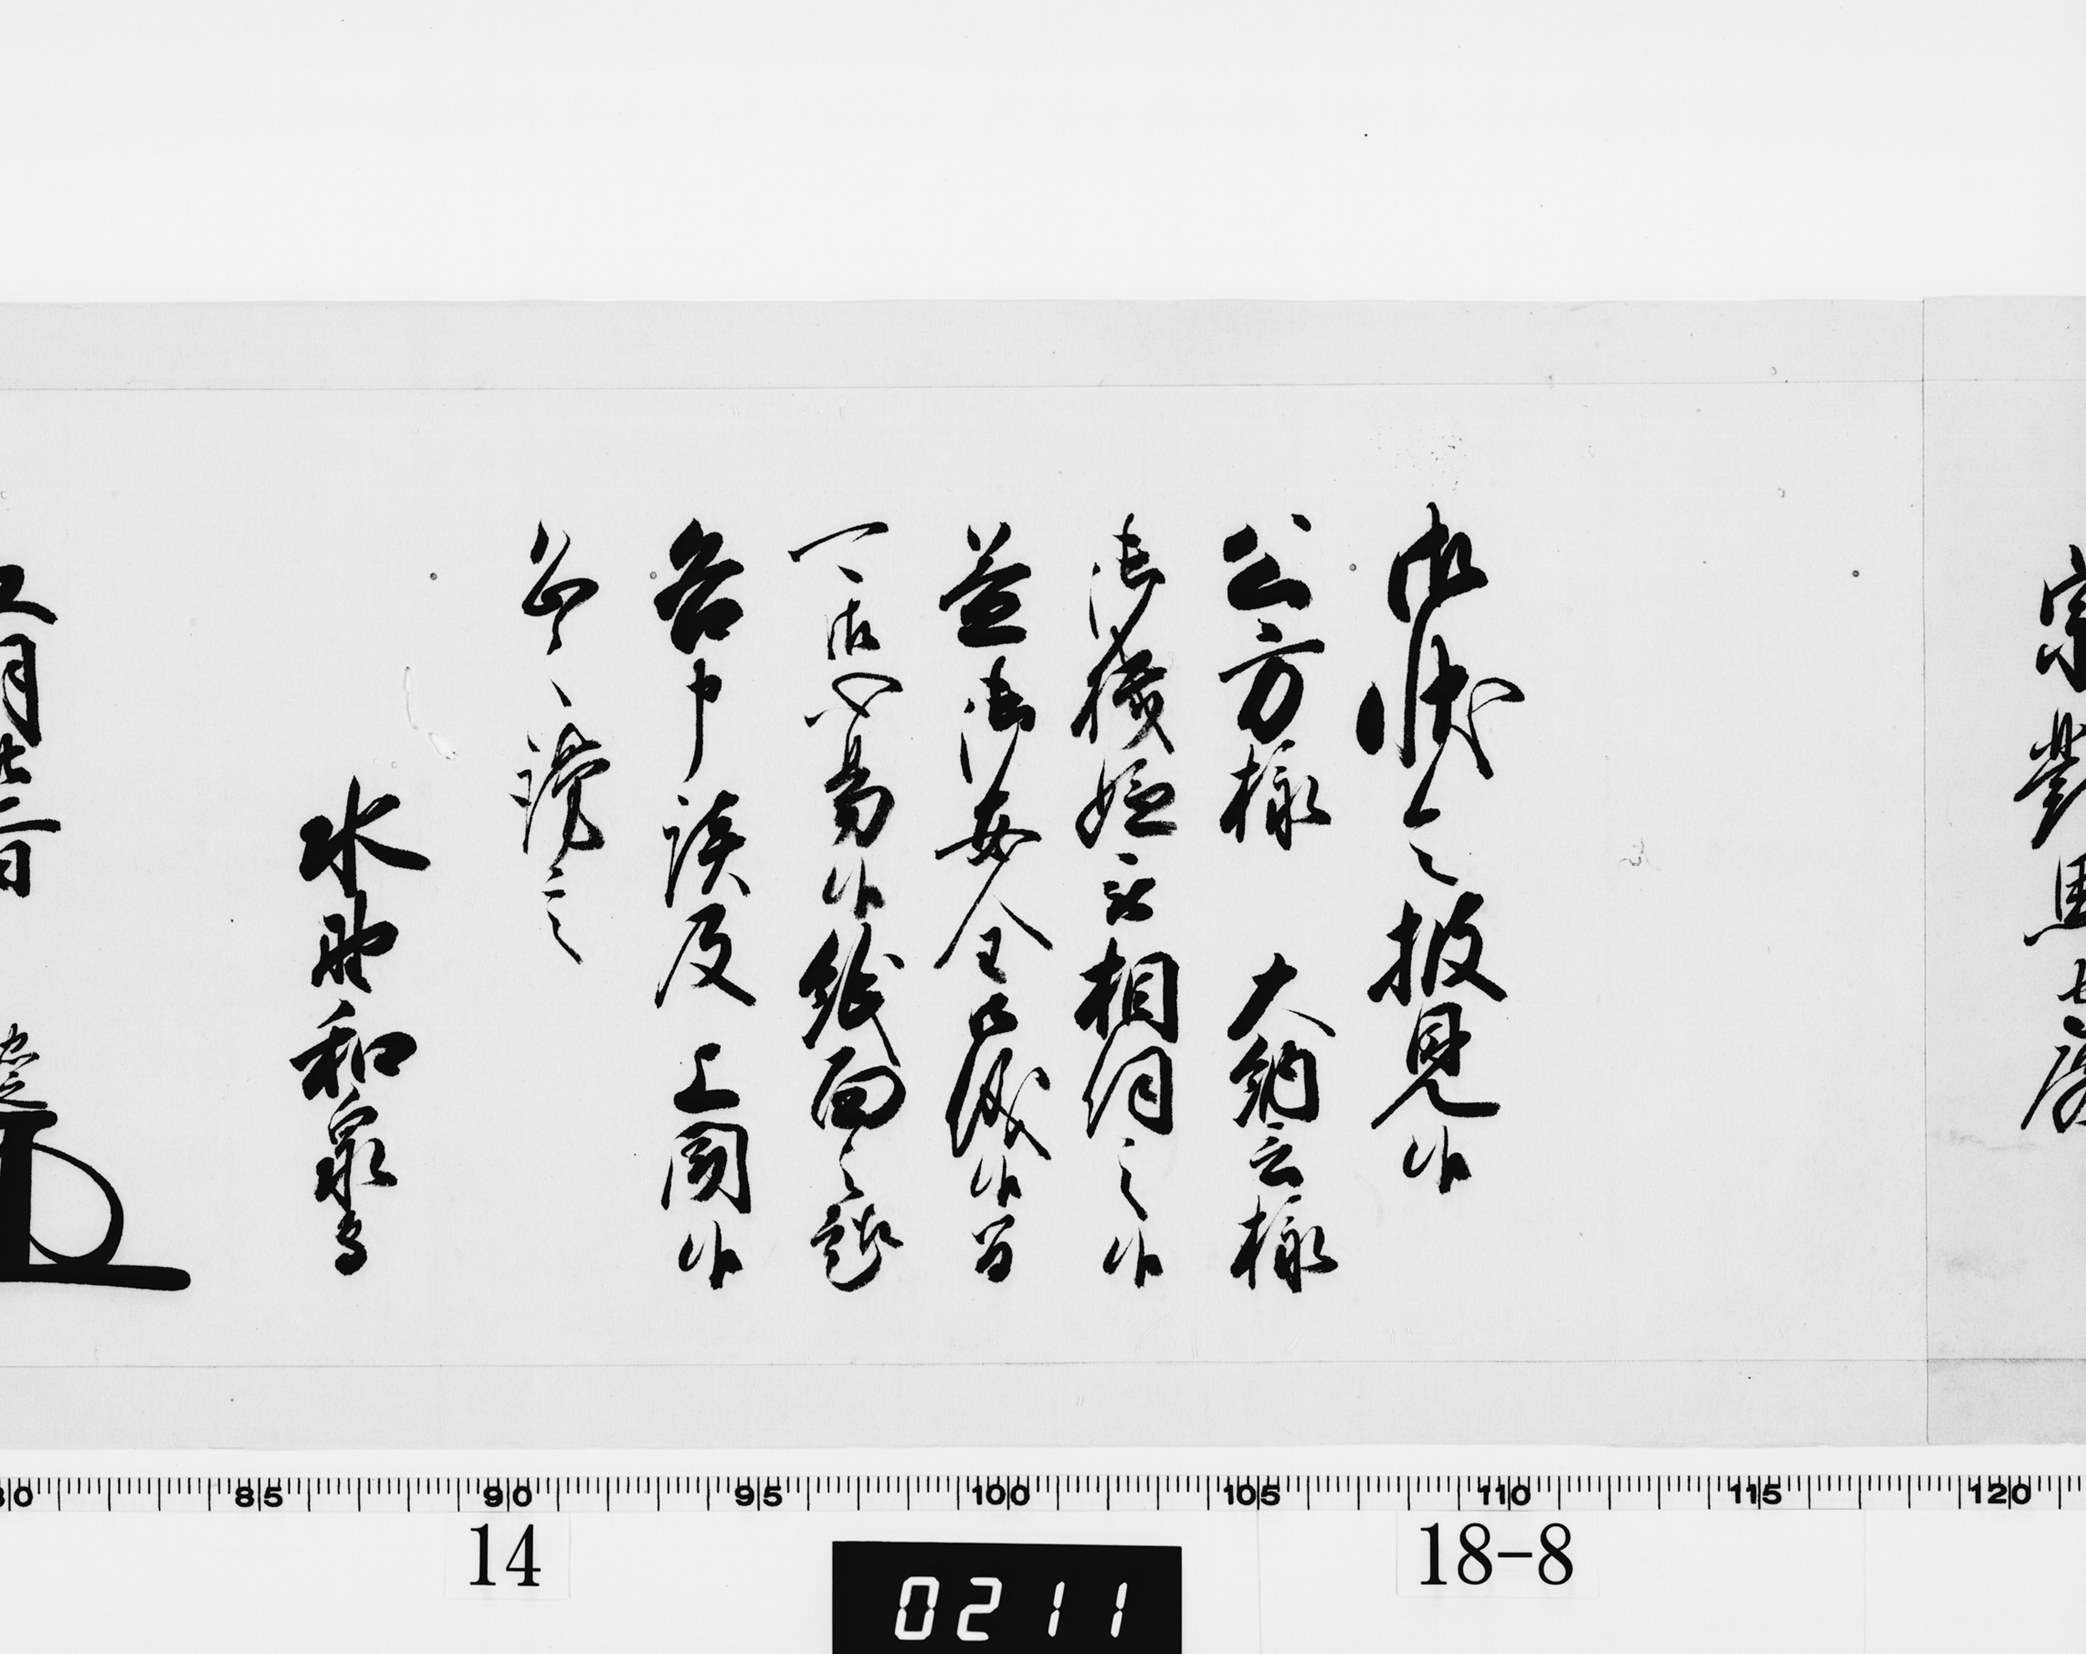 宗對馬守殿
御状令披見候
公方様 大納言様
御機嫌被相伺之候
益御安全御儀候間
可御心易候紙面之趣
各申談及 上聞候
恐々謹言
水野和泉守
五月廿一日 忠之
80 85 90 95 100 105 110 115 120
14 18-8
0211